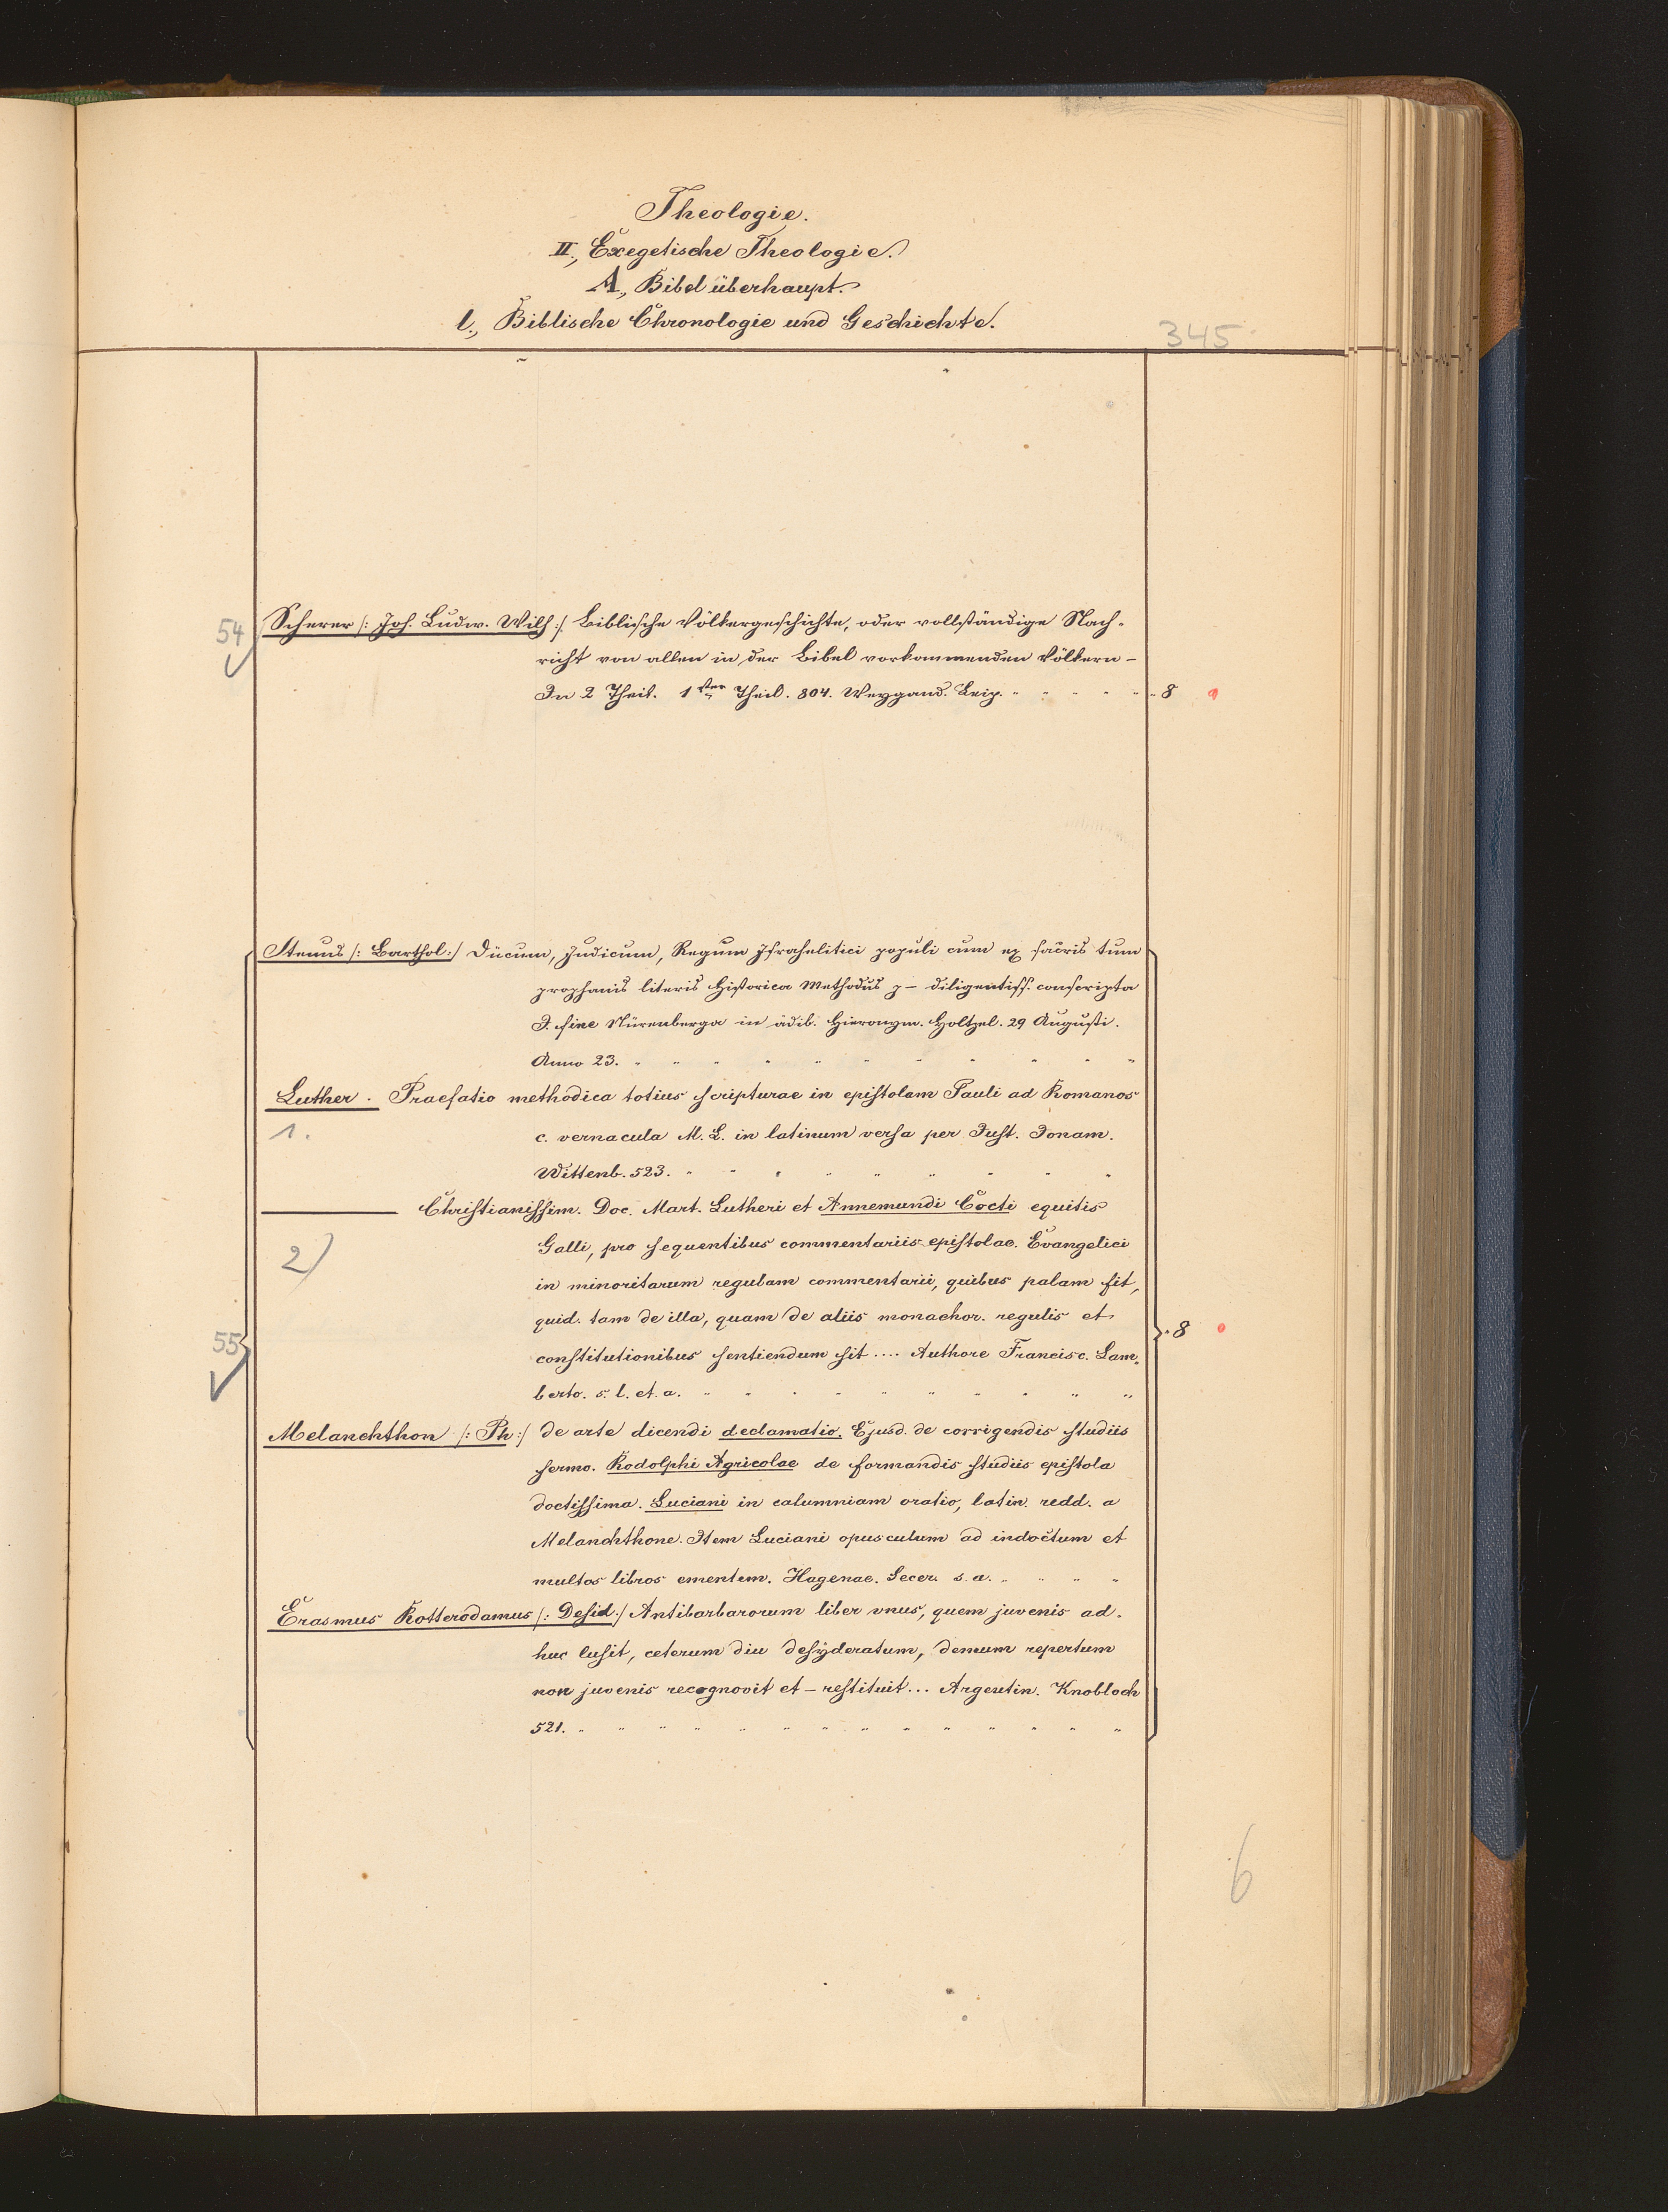 Theologie.
II., Exegetische Theologie.
A., Bibel überhaupt.
l., Biblische Chronologie und Geschichte.
345
54 Scherer /: Joh. Ludw. Wilh :/ Biblische Völkergeschichte, oder vollständige Nach-
richt von allen in der Bibel vorkommenden Völkern -
In 2 Theil. 1ster Theil. 804. Weygand. Leip. " " " " " " 8
Stenus /: Barthol :/ Ducum, Judicum, Regum Israhelitici populi cum ex sacris tum
prophanis literis Historica Methodus - diligentiss. conscripta
I. fine Nürenberga in ädib. Hieronym. Holtzel. 29 Augusti.
Anno 23. " " " " " " " " " " "
Luther. Praefatio methodica totius scripturae in epistolam Pauli ad Romanos
1. c. vernacula M. L. in latinum versa per Just. Jonam.
Wittenb. 523. " " " " " " " " "
——— Christianissim. Doc. Mart. Lutheri et Annemundi Cocti equitis
Galli, pro sequentibus commentariis epistolae. Evangelici
2) in minoritarum regulam commentarii, quibus palam fit,
quid. tam de illa, quam de aliis monachor. regulis et
55 constitutionibus sentiendum sit .... Authore Francisc. Lam- " 8
berto. s. l. et. a. " " " " " " " " " "
Melanchthon /: Ph :/ de arte dicendi declamatio. Ejusd. de corrigendis studiis
sermo. Rodolphi Agricolae de formandis studiis epistola
doctissima. Luciani in calumniam oratio, latin. redd. a
Melanchthone. Item Luciani opusculum ad indoctum et
multos libros ementem. Hagenae. Secer. s. a. " " " "
Erasmus Rotterodamus /: Desid :/ Antibarbarorum liber vnus, quem juvenis ad-
huc lusit, ceterum diu desyderatum, demum repertum
non juvenis recognovit et - restituit ... Argentin. Knobloch
521. " " " " " " " " " " " " " "
6